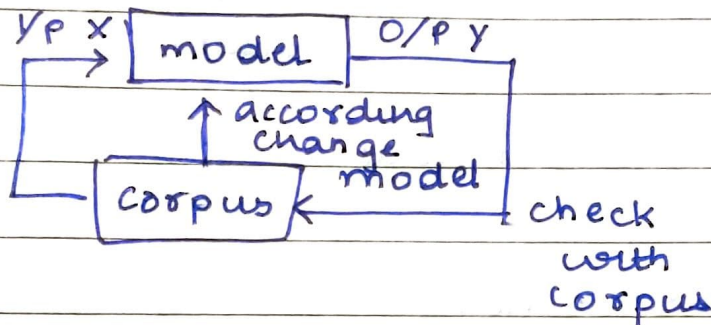 I/P X
model
O/P Y
according
change
model
corpus
check
with
corpus